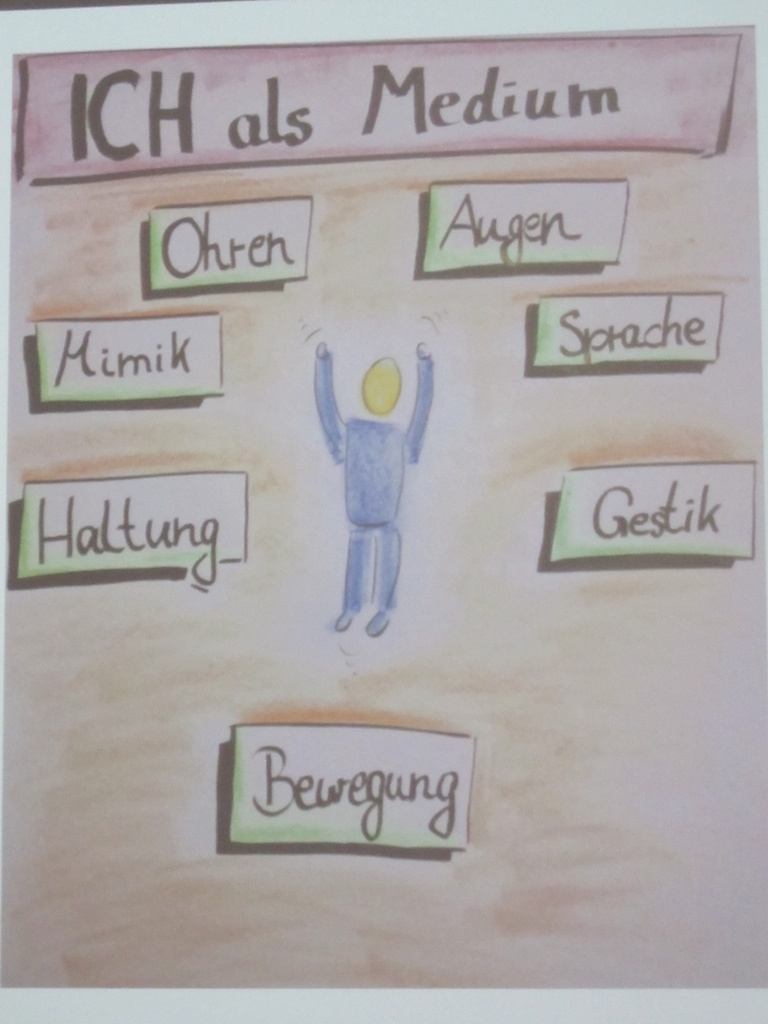 ICH als Medium
Ohren
Augen
Mimik
Sprache
Haltung
Gestik
Bewegung